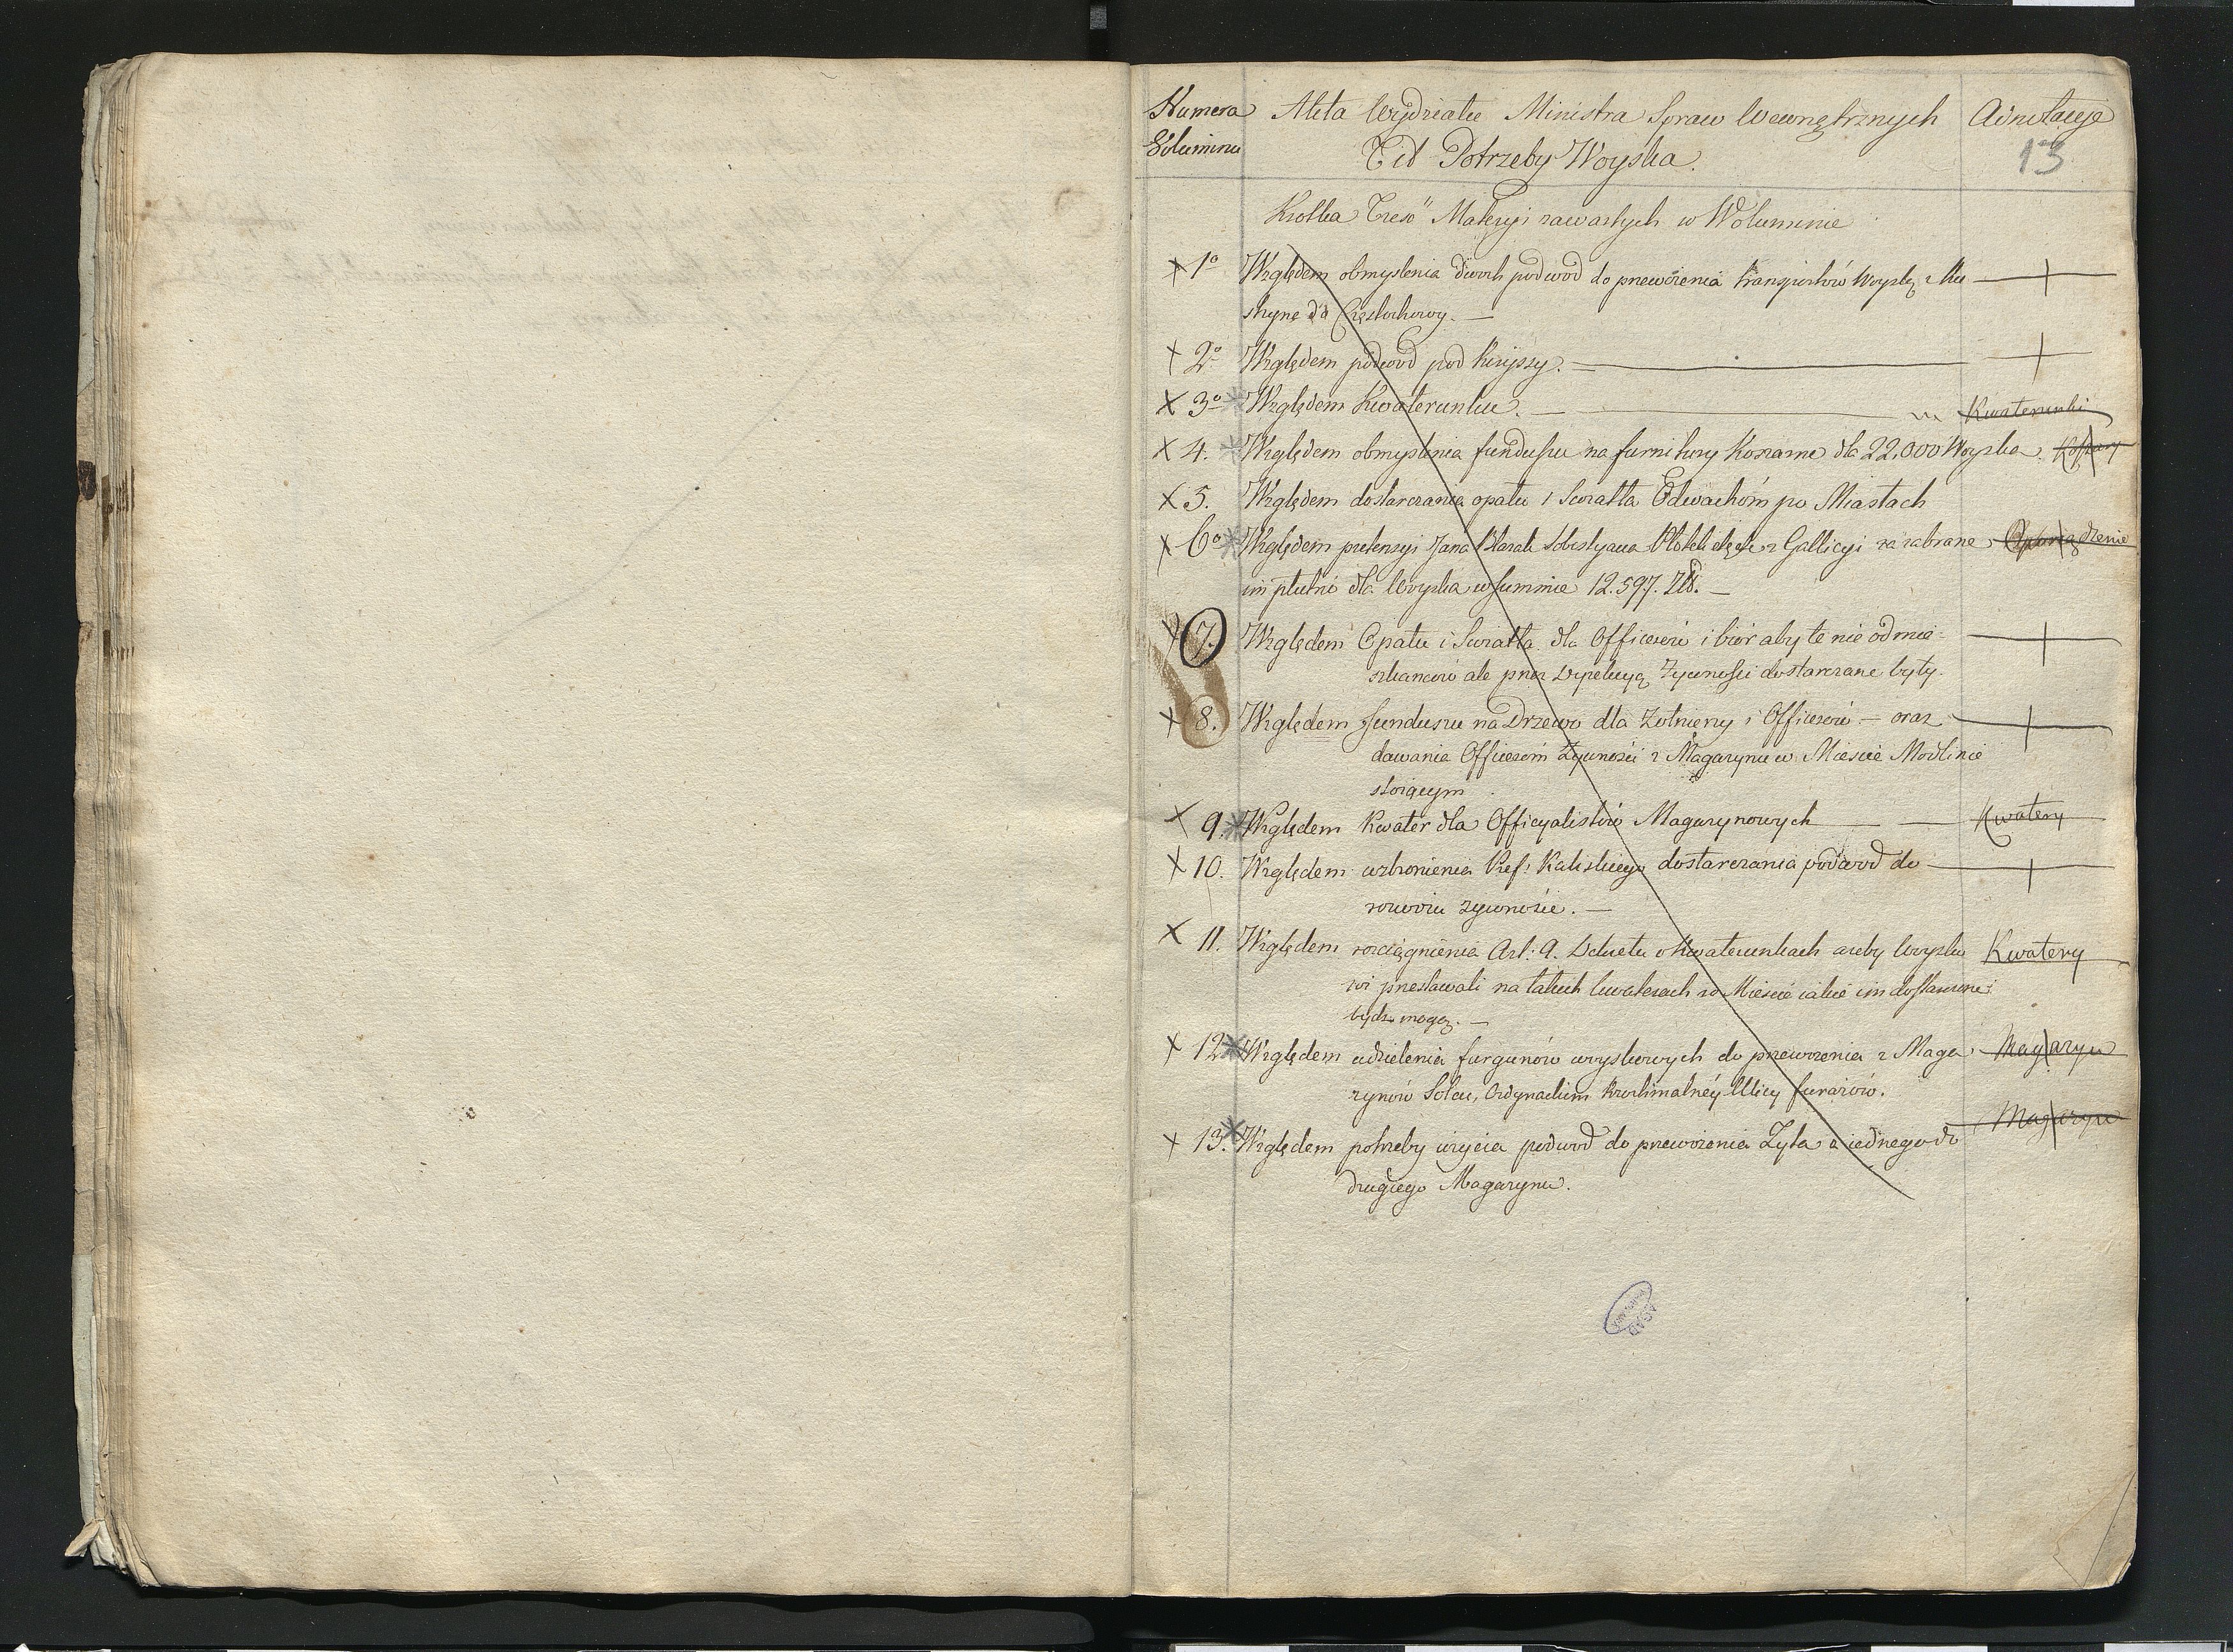 Numera Akta Wydziału Ministra Spraw Wewnętrznych Adnotacye
Voluminu Tit Potrzeby Woyska. 13
Krotka Treść Materyi zawartych w Woluminie
× 1° Względem obmyslenia dwoch podwod do przewożenia transportów Woysk z Ku
strzyna do Częstochowy. —
× 2° Względem podwod pod kiryssy. —
× 3° Względem Kwaterunku. — Kwaterunki
× 4. Względem obmyslenia funduszu na furnitury Koszarne dla 22,000 Woyska. Koszary
× 5. Względem dostarczania opału i Swiatła Odwachóm po Miastach
× 6° Względem pretensyi Jana z Gallicyi za zabrane
im płutno dla Woyska w summie 12.597. Zł. —
× 7. Względem Opału i Swiatła dla Officerów i biór aby te nie od mie-
szkanców ale przez żywności dostarczane były.
× 8. Względem funduszu na Drzewo dla Żołnierzy i Officerów — oraz
dawania Officeróm Żywności z Magazynu w Miescie Modlinie
stoiącym
× 9. Względem Kwater dla Officyalistów Magazynowych — Kwatery
× 10. Względem wzbronienia Pref: Kaliskiego dostarczania podwod do
rozwozu żywności. —
× 11. Względem rozciągnienia Art: 9. Dekretu o Kwaterunkach ażeby Woysko Kwatery
wi przestawali na takich kwaterach w Miescie iakie im dostarczone
bydz mogą. —
× 12 Względem udzielenia furgonów woyskowych do przewożenia z Maga Magazyn
zynów Solcu, Ordynackim Krochmalnéy Ulicy furażów.
× 13. Względem potrzeby użycia podwod do przewożenia Zyta z iednego do Magazyn
drugiego Magazynu.
AGAD